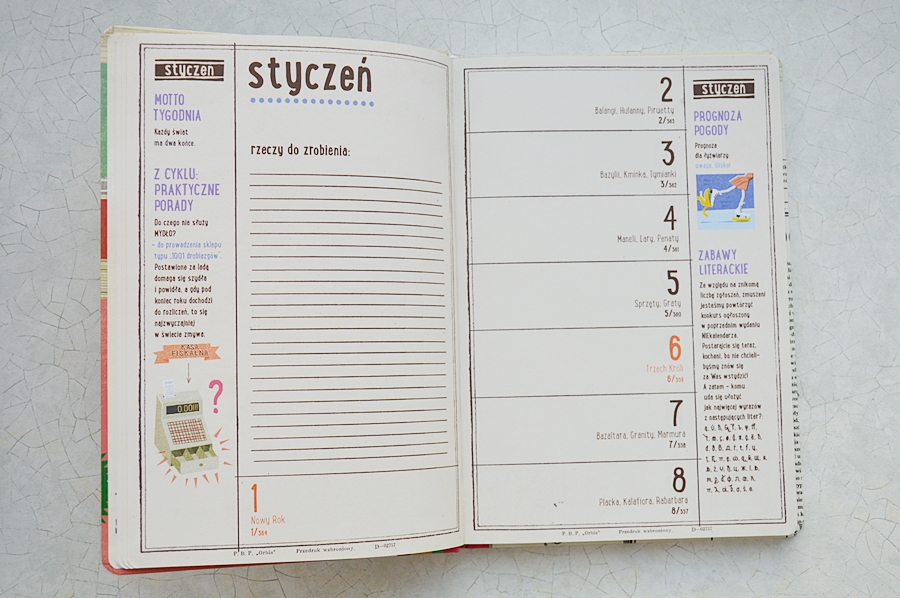 styczeń
MOTTO
TYGODNIA
Każdy świat
ma dwa końce.
Z CYKLU:
PRAKTYCZNE
PORADY
Do czego nie służy
MYDŁO?
– do prowadzenia sklepu
typu „1001 drobiazgów”.
Postawione za ladą
domaga się szydła
i powidła, a gdy pod
koniec roku dochodzi
do rozliczeń, to się
najzwyczajniej
w świecie zmywa.
KASA
FISKALNA
?
0.00
styczeń
rzeczy do zrobienia:
1
Nowy Rok
1/364
P. B. P. „Orbis” Przedruk wzbroniony. D—02757
2
Balangi, Hulanny, Piruetty
2/363
3
Bazylii, Kminka, Tymianki
3/362
4
Maneli, Lary, Penaty
4/361
5
Sprzęty, Graty
5/360
6
Trzech Króli
6/359
7
Bazaltara, Granity, Marmura
7/358
8
Placka, Kalafiora, Rabarbara
8/357
P. B. P. „Orbis” Przedruk wzbroniony. D—02757
styczeń
PROGNOZA
POGODY
Prognoza
dla łyżwiarzy:
uwaga, ślisko!
ZABAWY
LITERACKIE
Ze względu na znikomą
liczbę zgłoszeń, zmuszeni
jesteśmy powtórzyć
konkurs ogłoszony
w poprzednim wydaniu
NIEkalendarza.
Postarajcie się teraz,
kochani, bo nie chcieli-
byśmy znów się
za Was wstydzić!
A zatem – komu
uda się ułożyć
jak najwięcej wyrazów
z następujących liter?: